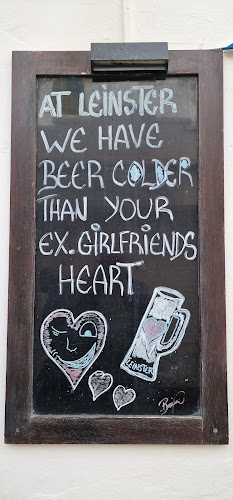 AT LEINSTER
WE HAVE
BEER COLDER
THAN YOUR
EX.GIRLFRIENDS
HEART
LEINSTER